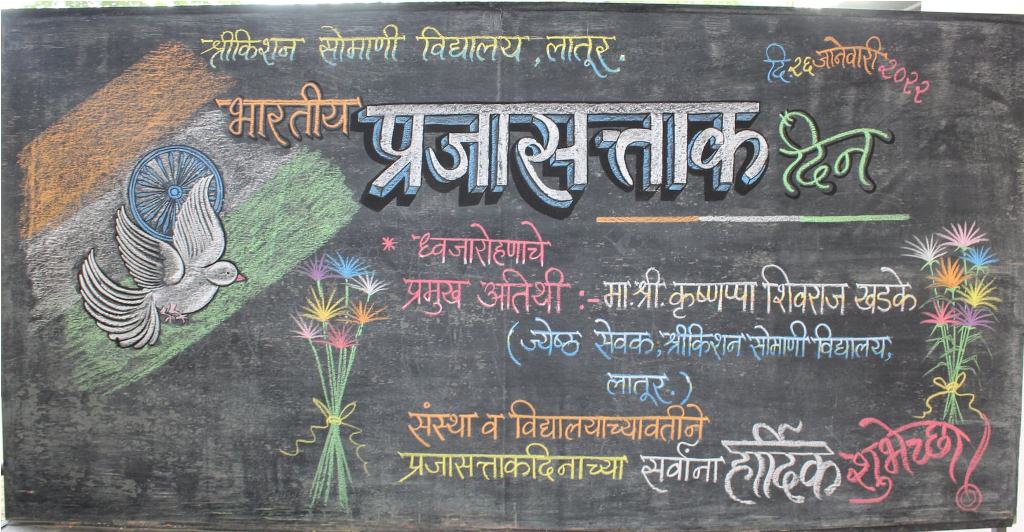 श्रीकिशन सोमाणी विद्यालय, लातूर.
दि.२६ जानेवारी २०२२
भारतीय प्रजासत्ताक दिन
* ध्वजारोहणाचे
प्रमुख अतिथी :- मा.श्री. कृष्णप्पा शिवराज खडके
(ज्येष्ठ सेवक, श्रीकिशन सोमाणी विद्यालय,
लातूर.)
संस्था व विद्यालयाच्यावतीने
प्रजासत्ताकदिनाच्या सर्वांना हार्दिक शुभेच्छा!